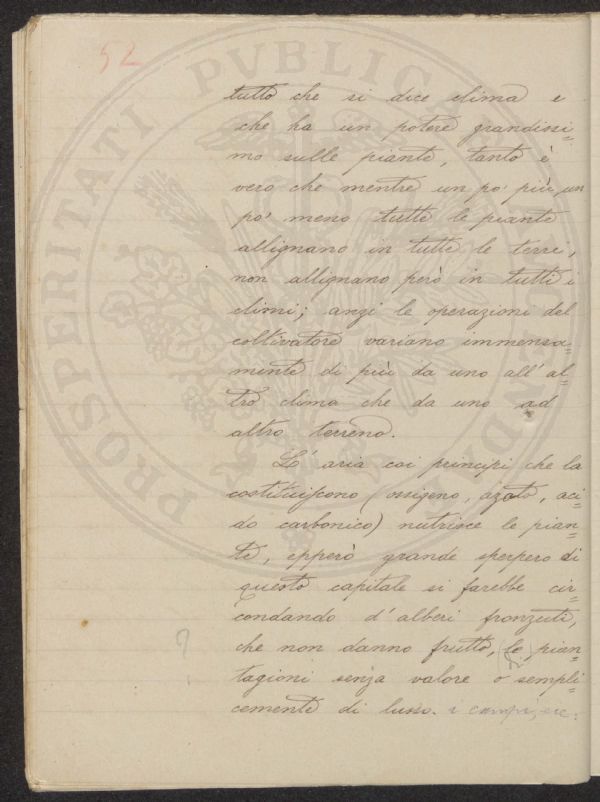 52
PROSPERITATI PVBLICAE AVGENDAE
tutto che si dice clima e
che ha un potere grandissi=
mo sulle piante, tanto è
vero che mentre un po' più, un
po' meno tutte le piante
allignano in tutte le terre,
non allignano però in tutti i
climi; anzi le operazioni del
coltivatore variano immensa=
mente di più da uno all'al=
tro clima che da uno ad
altro terreno.
L'aria coi principî che la
costituiscono (ossigeno, azoto, aci=
do carbonico) nutrisce le pian=
te, epperò grande sperpero di
questo capitale si farebbe cir=
condando d'alberi fronzuti,
che non danno frutto, (le) pian=
tagioni senza valore o sempli=
cemente di lusso. i campi, ecc.
?